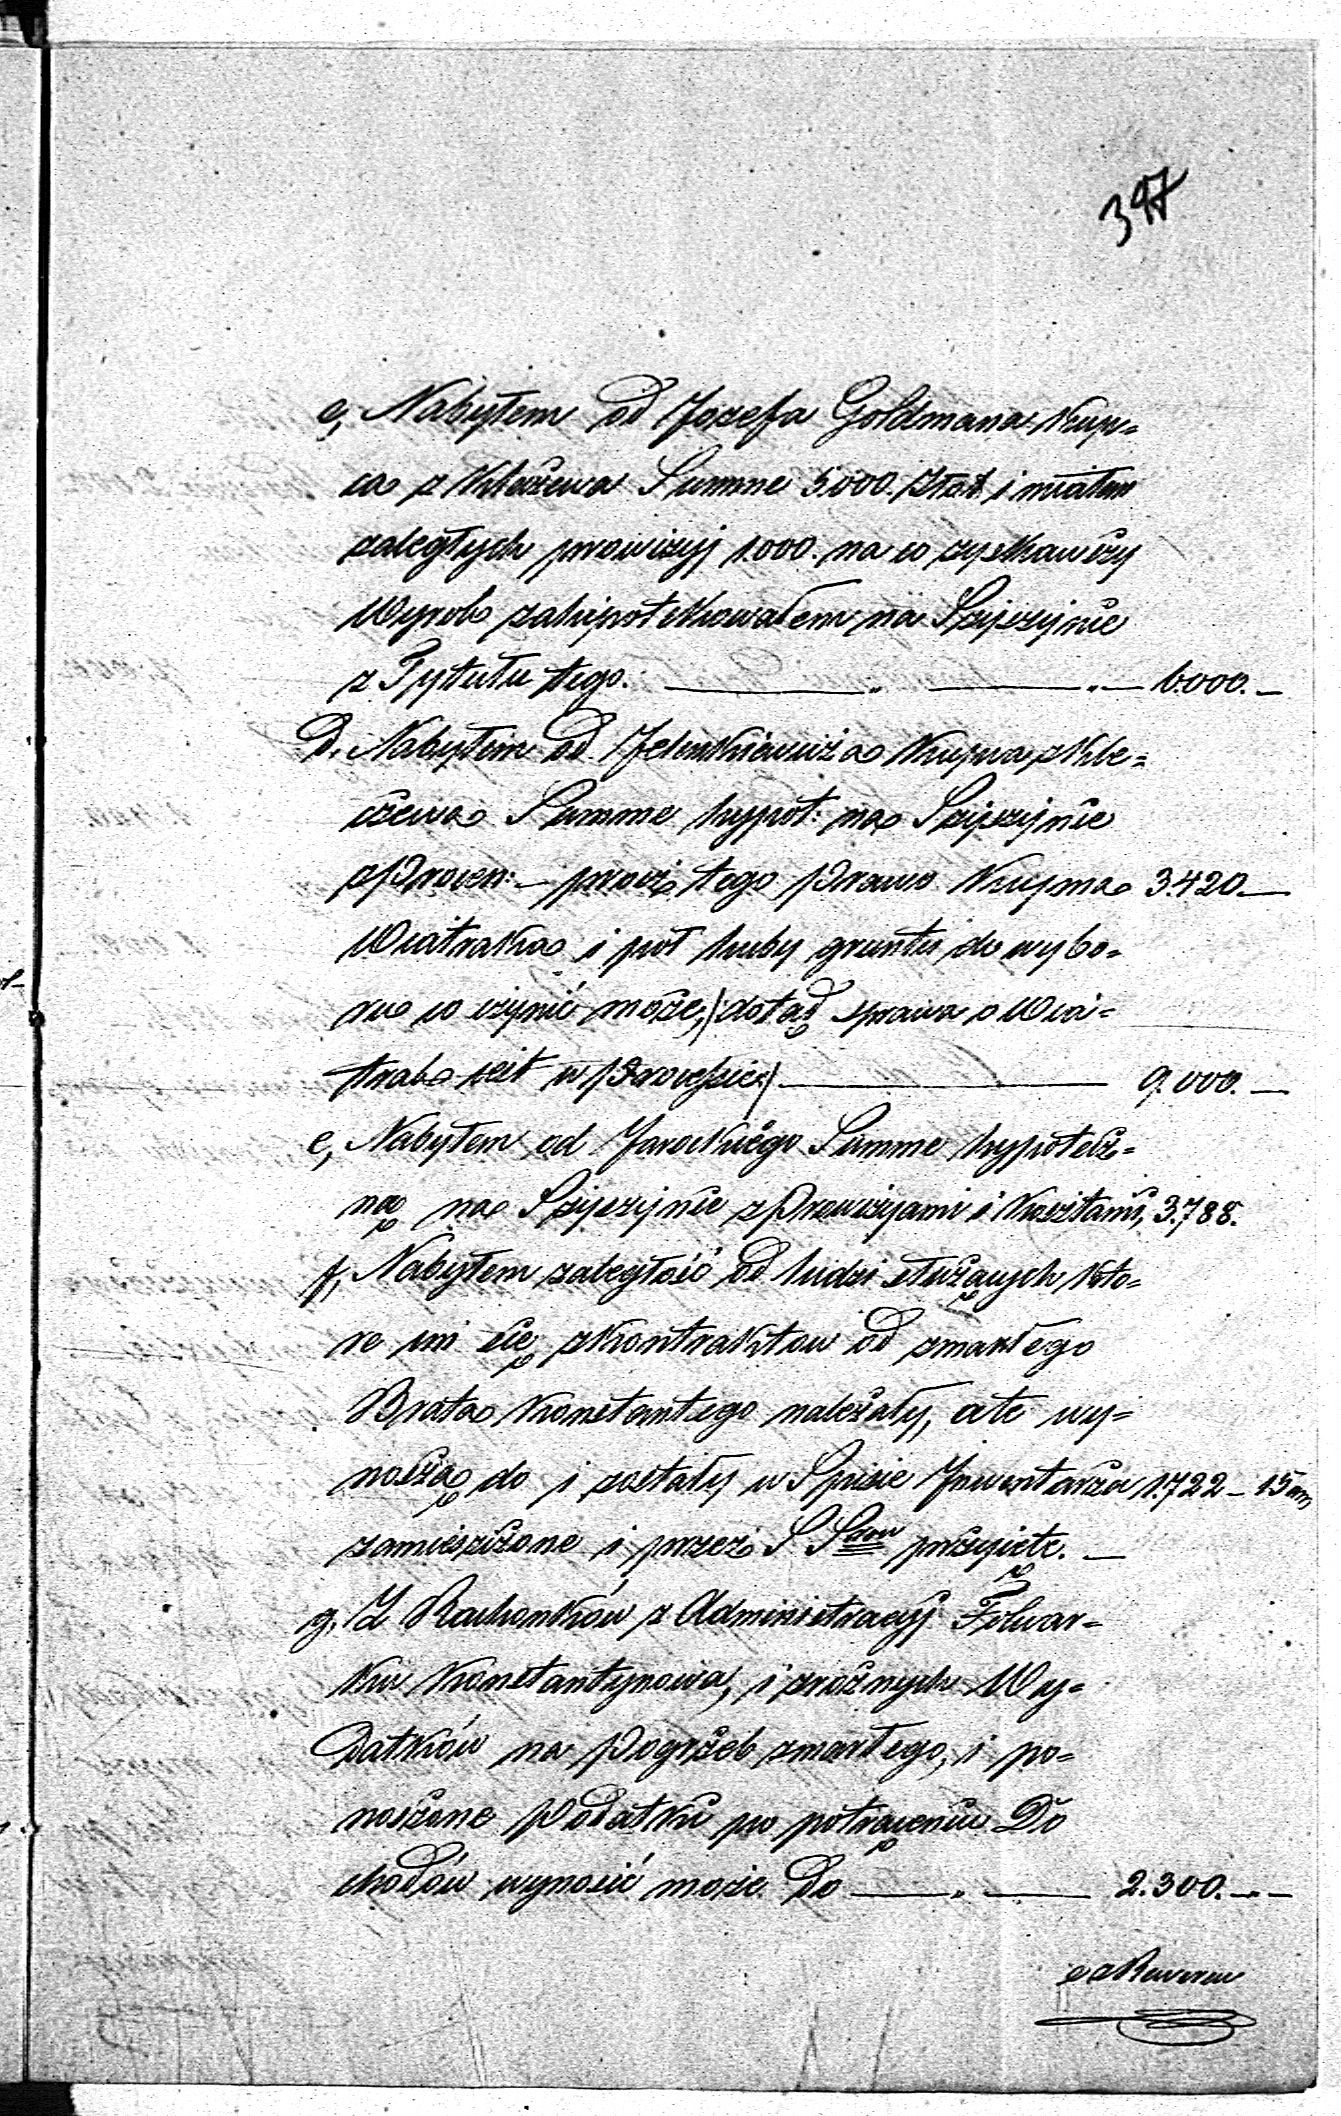 397
c, Nabyłem od Jozefa Goldmana Kup-
ca z Kleczewa Summe 5.000. Złzł i miałem
zaległych prowizyj 1.000. na co zyskawszy
Wyrok zahipotekowałem na Szyszynie
z Tytułu tego. — 6.000. —
d. Nabyłem od Kupca z Kle-
czewa Summe hypot: na Szyszynie
z Procen: — procz tego Prawo Kupna 3.420. —
Wiatraka i puł huby gruntu do wybo-
ru co czynić może, /: dotąd sprawa o Wia-
trak jest w Processie :/ — 9.000. —
e, Nabyłem od Jarockiego Summe hypotecz-
ną na Szyszynie z Prowizyami i Kosztami, 3.788.
f, Nabyłem zaległość od ludzi służących kto-
re im się z kontraktow od zmarłego
Brata Konstantego należały, a te wy-
noszą do i zostały w Spisie Inwentarza 1.722 – 15
zamieszczone i przez S przyięte. —
g. Z Rachonków z Administracyj Folwar-
ku Konstantynowa, i z rożnych Wy-
datków na Pogrzeb zmarłego, i po-
noszone Podatki po potrąceniu Do
chodów wynosić może do — 2.300. —